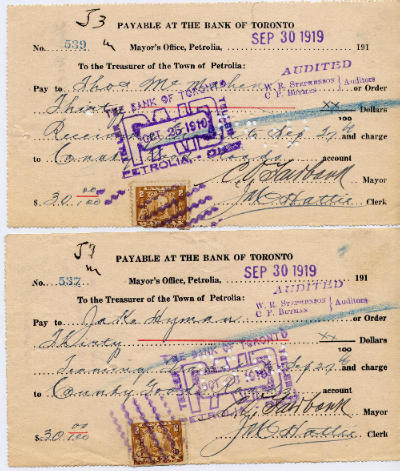 J3
PAYABLE AT THE BANK OF TORONTO
SEP 30 1919
No. 539 Mayor's Office, Petrolia, 191
To the Treasurer of the Town of Petrolia:
AUDITED
W. R. STEPHENSON
C. F. BUTMAN
Auditors
Pay to Thos or Order
Thirty xx Dollars
100
THE BANK OF TORONTO
PAID
OCT 25 1919
PETROLIA - ONT.
to Sep 27 and charge
to County account
$30.00 Mayor
Clerk
J
PAYABLE AT THE BANK OF TORONTO
SEP 30 1919
No. 537 Mayor's Office, Petrolia, 191
To the Treasurer of the Town of Petrolia:
AUDITED
W. R. STEPHENSON
C. F. BUTMAN
Auditors
Pay to Jake Hyman or Order
Thirty xx Dollars
100
THE BANK OF TORONTO
PAID
Teaming Sep 27 and charge
to County Good Roads account
Mayor
$30.00 Clerk